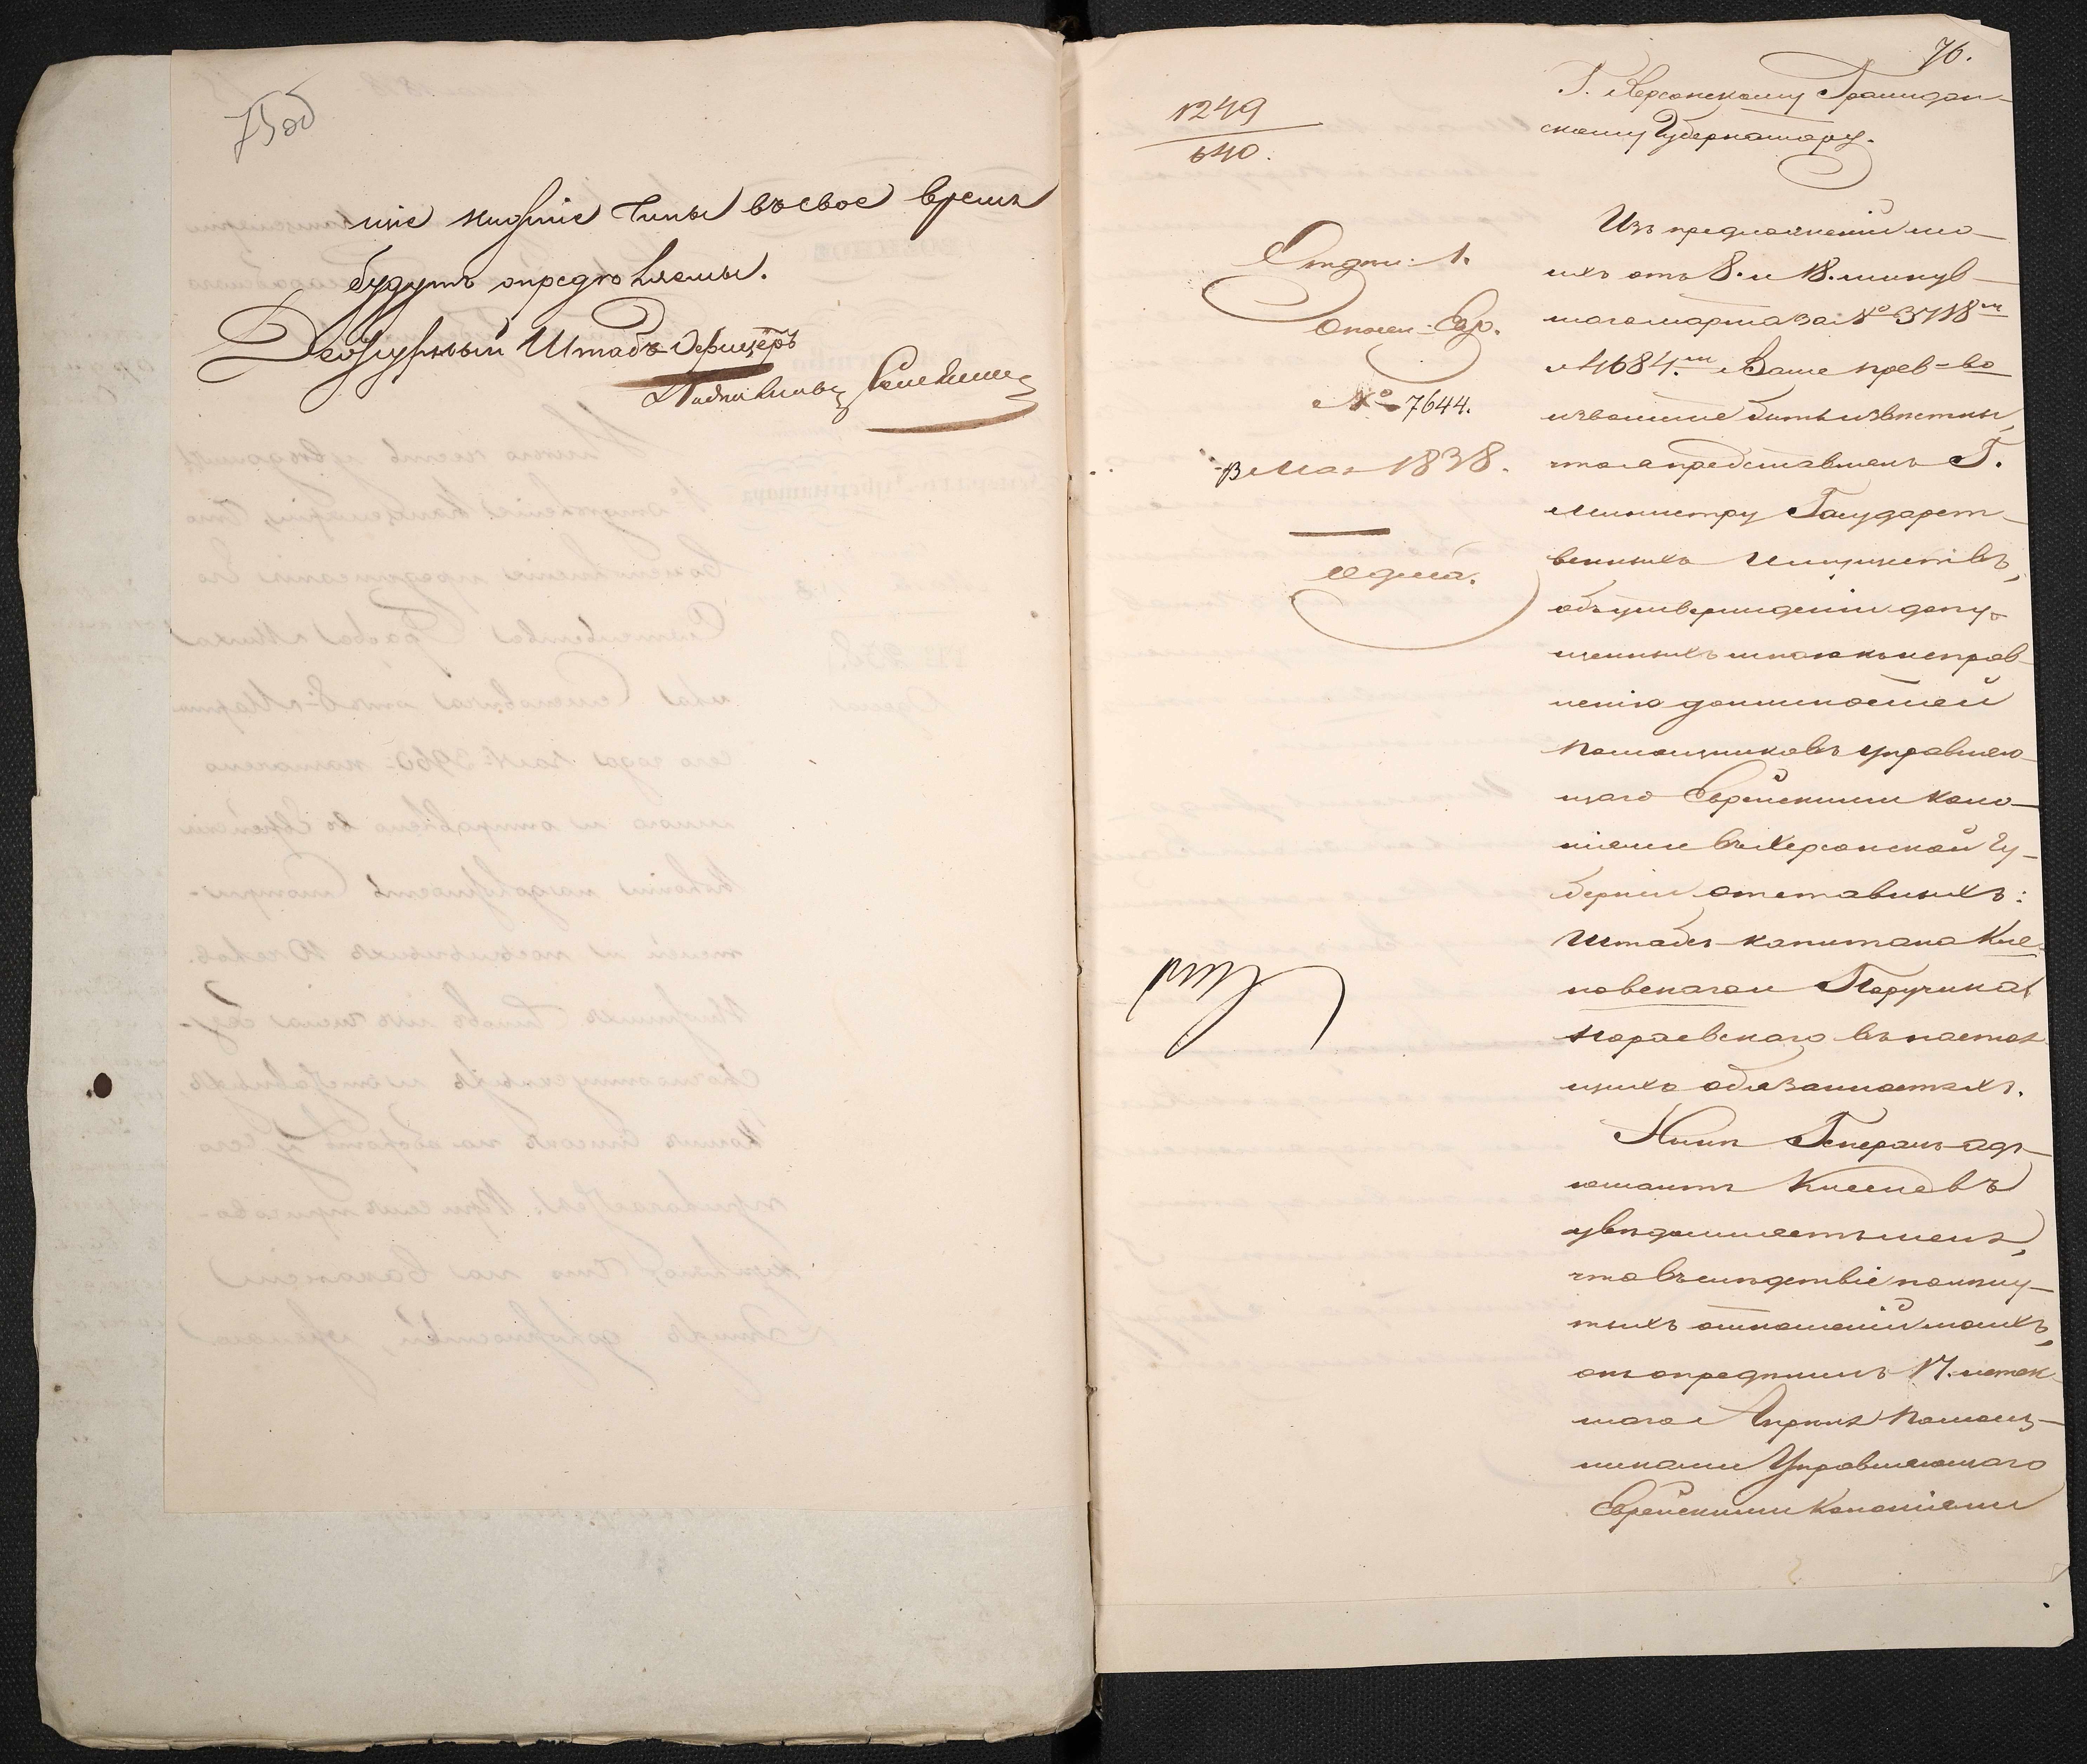 75об
ніе нижніе чины въ свое время
будутъ опредѣляемы.
Дежурный Штабъ-Офицеръ
Подполковн
76.
1249
640.
Г. Херсонскому Граждан-
скому Губернатору.
Отдѣл: 1.
О посел: Евр.
№ 7644.
13 Мая 1838.
Одесса.
Изъ предложеній мо-
ихъ отъ 8. и 18. минув-
шаго марта за № 3718м
и 4684.м Ваше прев-во
изволите быть извѣстны,
что я представлялъ Г.
Министру Государст-
венныхъ Имуществъ,
объ утвержденіи допу-
щенныхъ мною къ исправ-
ленію должностей
помощниковъ управляю-
щаго Еврейскими коло-
ніями въ Херсонской Гу-
берніи отставныхъ:
Штабсъ-капитана Кле-
новскаго и Поручика
Караевскаго въ настоя-
щихъ обязанностяхъ.
Нынѣ Генералъ-адъ-
ютантъ Киселевъ
увѣдомляетъ меня,
что въ слѣдствіе помяну-
тыхъ отношеній моихъ,
онъ опредѣлилъ 17. истек-
шаго Апрѣля помощ-
никами Управляющаго
Еврейскими Колоніями